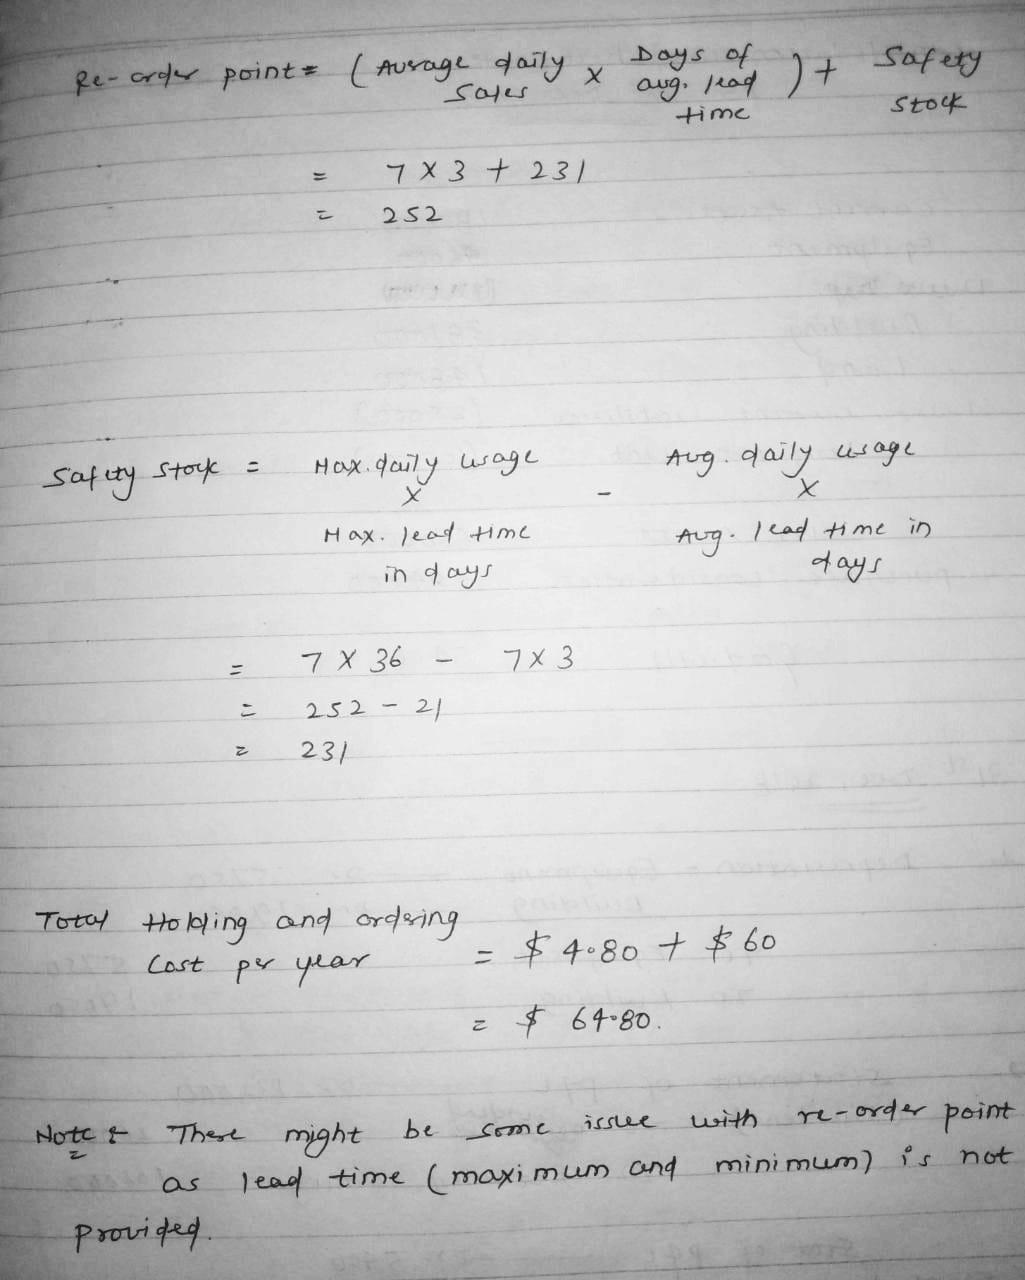 Re-order point = ( Average daily sales x Days of avg. lead time ) + Safety stock
= 7 x 3 + 231
= 252
Safety stock = Max. daily usage x Max. lead time in days - Avg. daily usage x Avg. lead time in days
= 7 x 36 - 7x3
= 252 - 21
= 231
Total Holding and ordering
Cost per year = $ 4.80 + $ 60
= $ 64.80.
Note : There might be some issue with re-order point
as lead time (maximum and minimum) is not
provided.